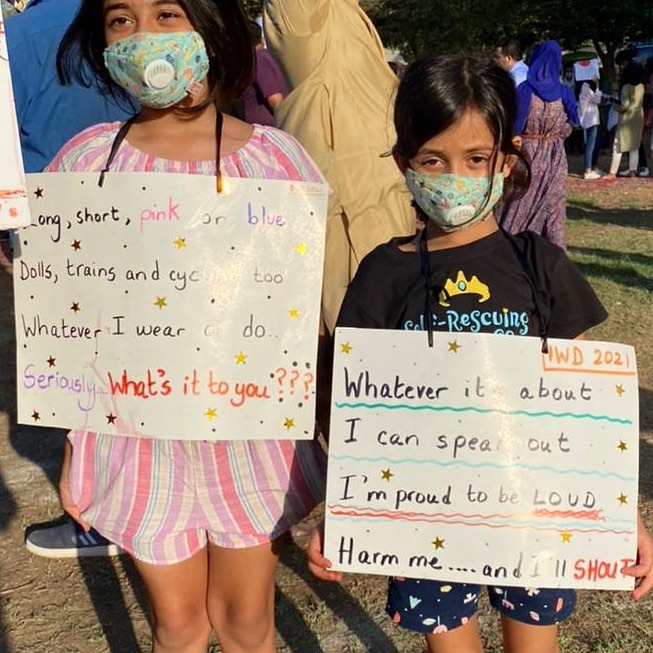 Long, short, pink or blue
Dolls, trains and too
Whatever I wear do..
Seriously.. What's it to you???
Self-Rescuing
IWD 2021
Whatever it about
I can speak out
I'm proud to be LOUD
Harm me.... and I'll SHOUT